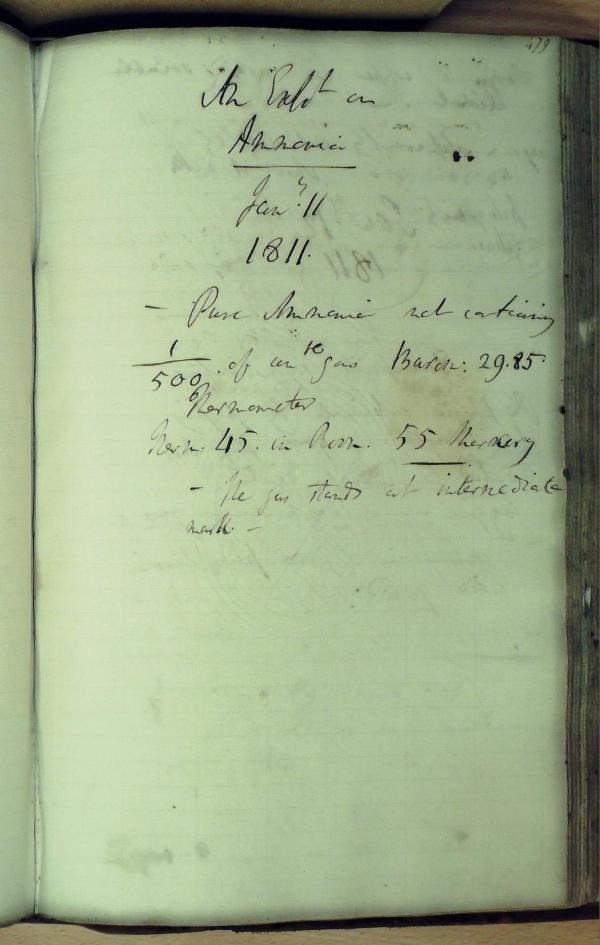 479
An Expt on
Ammonia
Jany. 11
1811.
- Pure Ammonia not containing
1/500 of un gas Barom: 29.85
Thermometer
Therm: 45. in Room. 55 Mercury
- The gas stands at intermediate
mark -